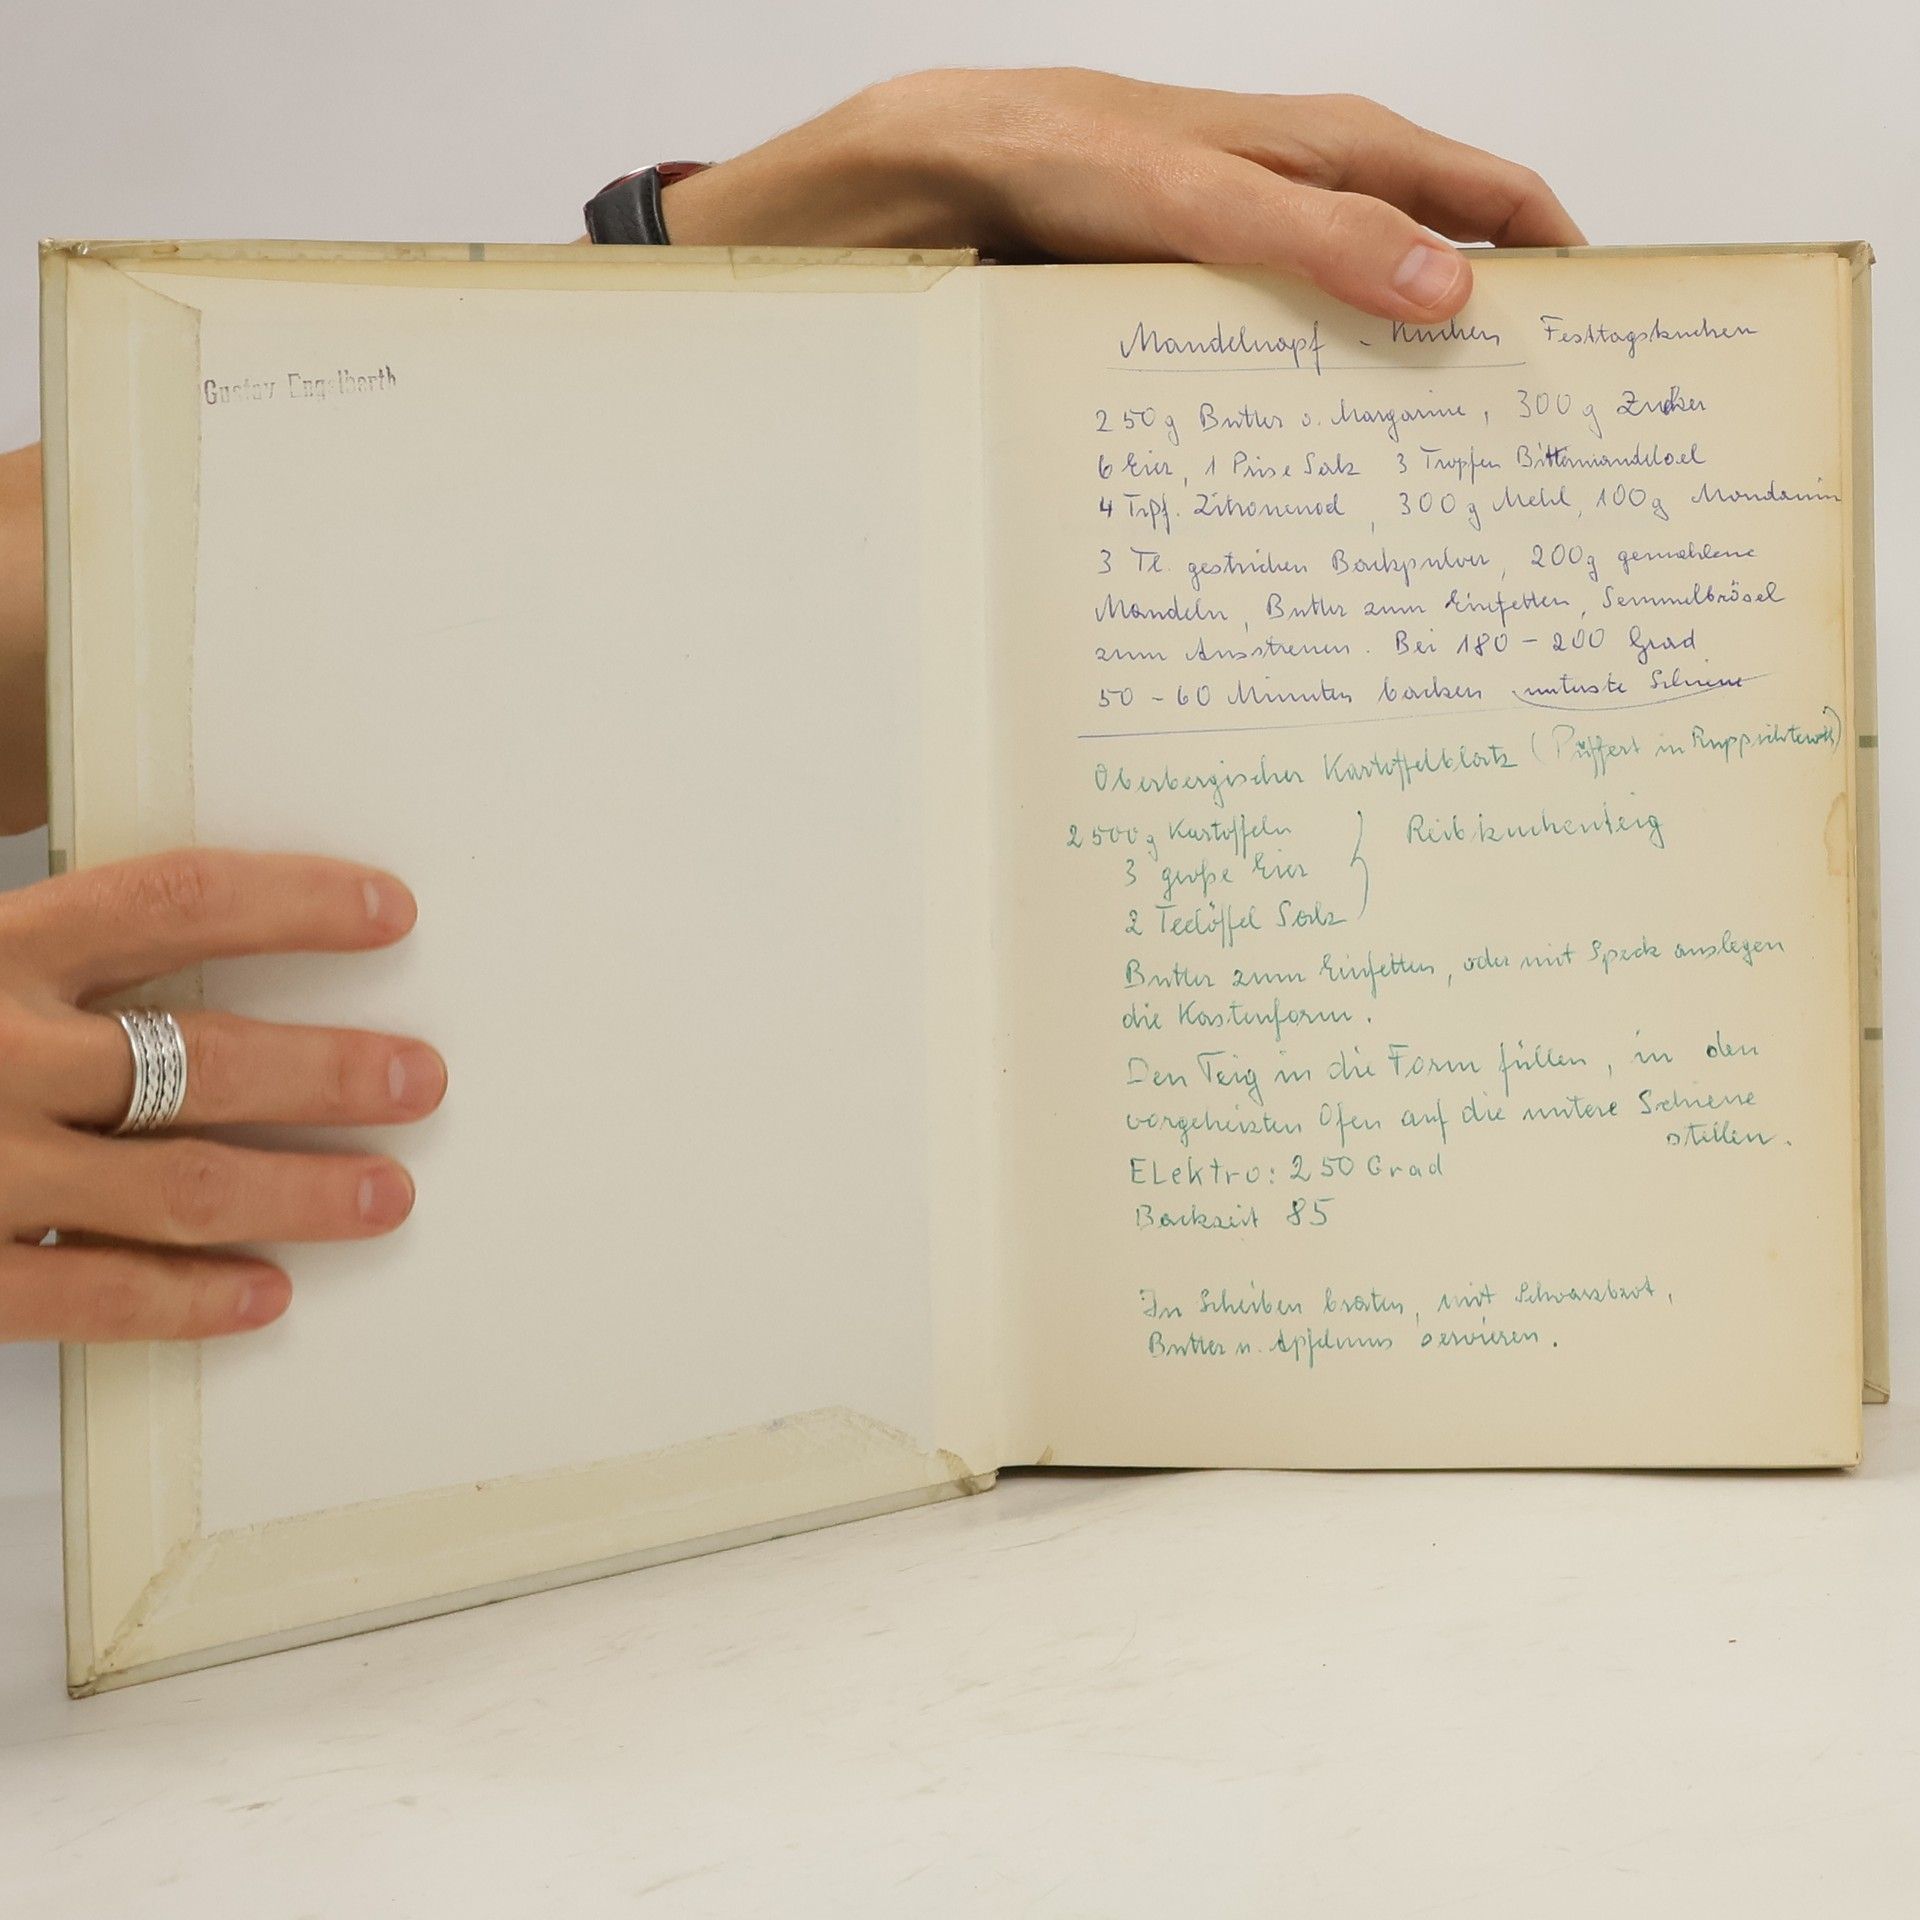 Gustav Engelbarth
Mandelnapf - Kuchen Festtagskuchen
250g Butter o. Margarine, 300g Zucker
6 Eier, 1 Prise Salz 3 Tropfen Bittermandeloel
4 Trpf. Zitronenoel, 300g Mehl, 100g Mondamin
3 Tl. gestrichen Backpulver, 200g gemahlene
Mandeln, Butter zum Einfetten, Semmelbrösel
zum Ausstreuen. Bei 180 - 200 Grad
50 - 60 Minuten backen unterste Schiene
Oberbergischer Kartoffelblatz (Püffert in Ruppichteroth)
2500g Kartoffeln } Reibkuchenteig
3 große Eier
2 Teelöffel Salz
Butter zum Einfetten, oder mit Speck auslegen
die Kastenform.
Den Teig in die Form füllen, in den
vorgeheizten Ofen auf die untere Schiene
stellen.
Elektro: 250 Grad
Backzeit 85
In Scheiben braten, mit Schwarzbrot,
Butter u. Apfelmus servieren.